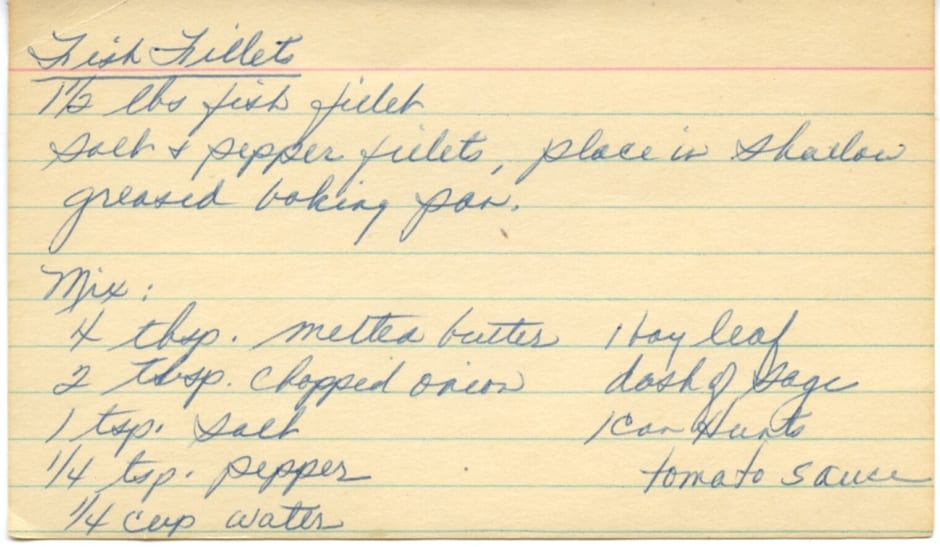 Fish Fillets
1 1/2 lbs fish fillet
Salt & pepper fillets, place in shallow
greased baking pan.
Mix:
4 tbsp. melted butter
2 tbsp. chopped onion
1 tsp. salt
1/4 tsp. pepper
1/4 cup water
1 bay leaf
dash of sage
1 can Hunts
tomato sauce